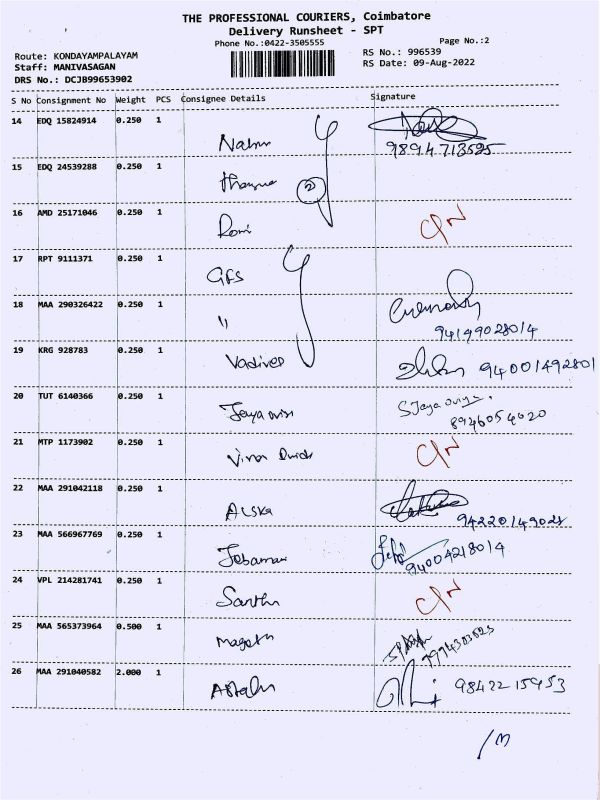 THE PROFESSIONAL COURIERS, Coimbatore
Delivery Runsheet - SPT
Phone No.:0422-3505555
Page No.:2
Route: KONDAYAMPALAYAM
RS No.: 996539
Staff: MANIVASAGAN
RS Date: 09-Aug-2022
DRS No.: DCJB99653902
S No Consignment No Weight PCS Consignee Details Signature
14 EDQ 15824914 0.250 1
9894713525
15 EDQ 24539288 0.250 1
2
16 AMD 25171046 0.250 1 Romi
17 RPT 9111371 0.250 1 GFS
18 MAA 290326422 0.250 1 "
94199028014
19 KRG 928783 0.250 1 Vadivel 94001492801
20 TUT 6140366 0.250 1 Jayaovia S Jayaoviya.
8946054020
21 MTP 1173902 0.250 1
22 MAA 291042118 0.250 1
94220149028
23 MAA 566967769 0.250 1
94004218014
24 VPL 214281741 0.250 1 Santhi
25 MAA 565373964 0.500 1
26 MAA 291040582 2.000 1 9842215953